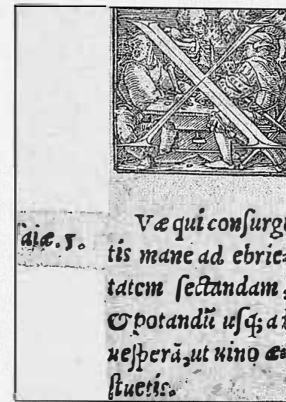 X
aiæ. 5.
Væ qui conſurgi
tis mane ad ebrie-
tatem ſectandam,
& potandū uſq; ad
ueſperã, ut uino æ-
ſtuetis.